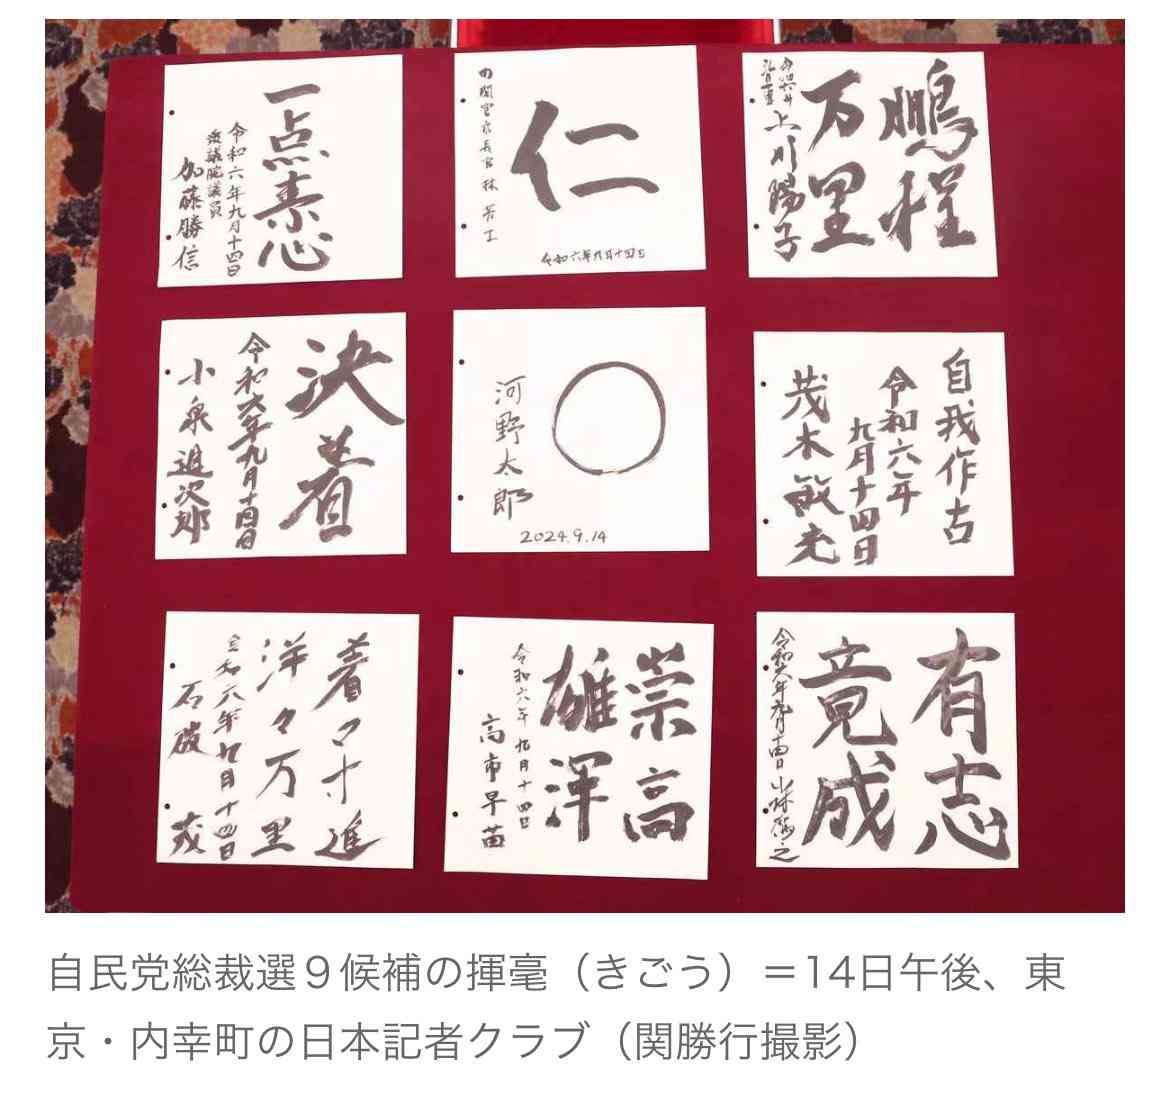 一点素心
令和六年九月十四日
衆議院議員
加藤勝信
内閣官房長官 林 芳正
仁
令和六年九月十四日
鵬程
万里
令和六年
九月十四日
上川陽子
決着
令和六年九月十四日
小泉進次郎
河野太郎
2024.9.14
自我作古
令和六年
九月十四日
茂木敏充
着々寸進
洋々万里
令和六年九月十四日
石破 茂
崇高
雄渾
令和六年九月十四日
高市早苗
有志
竟成
令和六年九月十四日 小林鷹之
自民党総裁選９候補の揮毫（きごう）＝14日午後、東
京・内幸町の日本記者クラブ（関勝行撮影）